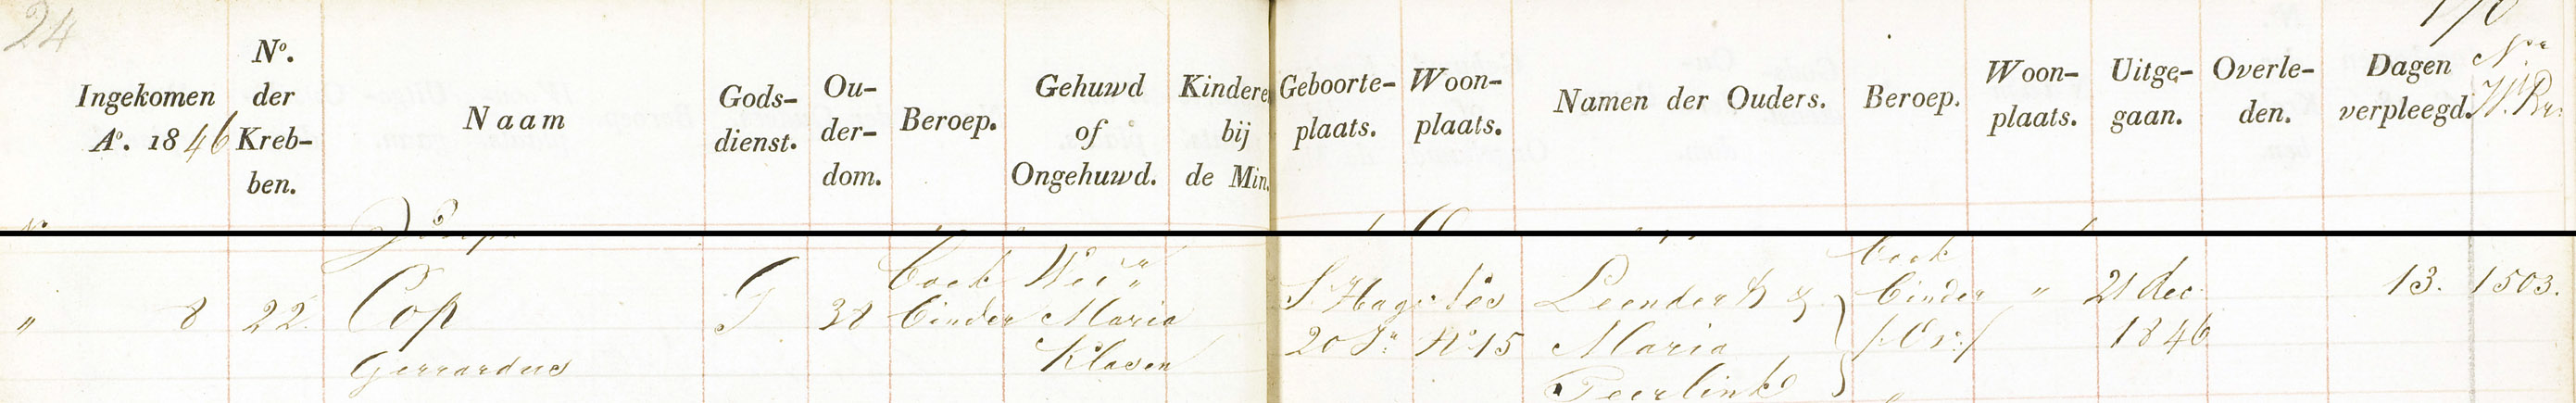 24
170
Ingekomen
Aº. 1846
Nº.
der
Kreb-
ben.
Naam
Gods-
dienst.
Ou-
der-
dom.
Beroep.
Gehuwd
of
Ongehuwd.
Kindere
bij
de Min.
Geboorte-
plaats.
Woon-
plaats.
Namen der Ouders.
Beroep.
Woon-
plaats.
Uitge-
gaan.
Overle-
den.
Dagen
verpleegd.
" 8
22.
Cop
Gerrardus
G
38
Boek
Binder
Maria
Klasen
S Hage
20 Jr
Nº 15
Leendert &
Maria
Peerlink
Boek
Binder
"
21 dec.
1846
13.
1503.